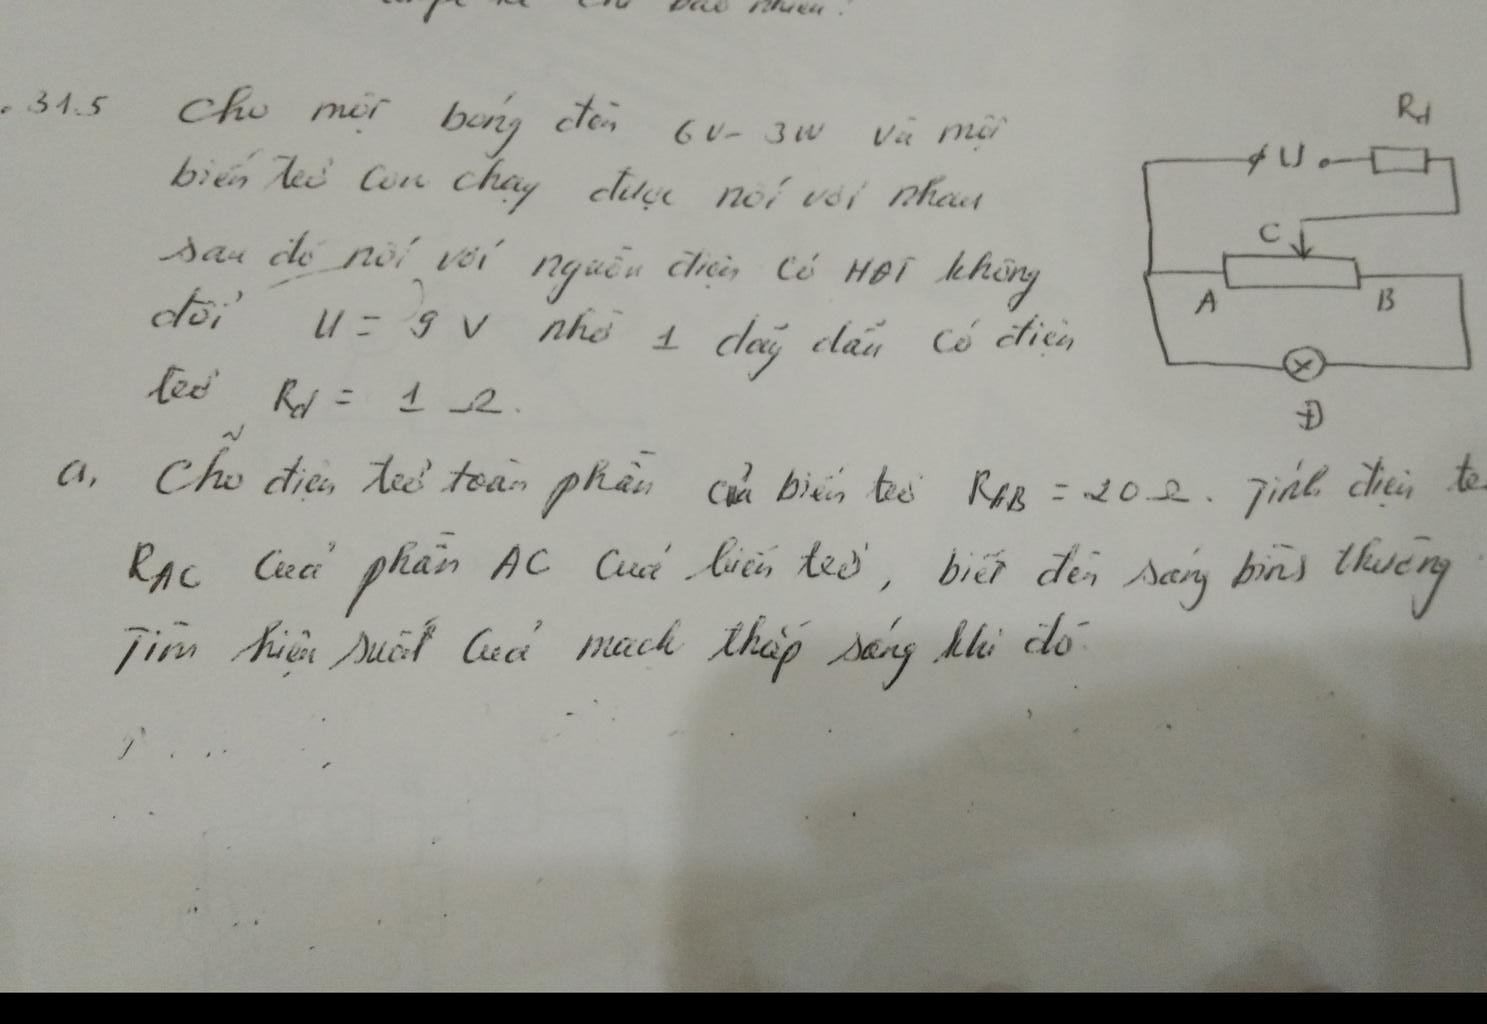 . 31.5 Cho một bóng đèn 6V- 3W và một
biến trở con chạy được nối với nhau
sau đó nối với nguồn điện có HĐT không
đổi U = 9 V nhờ 1 dây dẫn có điện
trở Rd = 1 Ω.
a, Cho điện trở toàn phần của biến trở RAB = 20 Ω. Tính điện
RAC của phần AC của biến trở, biết đèn sáng bình thường
Tìm hiệu suất của mạch thắp sáng khi đó.
Rd
U
C
A
B
Đ